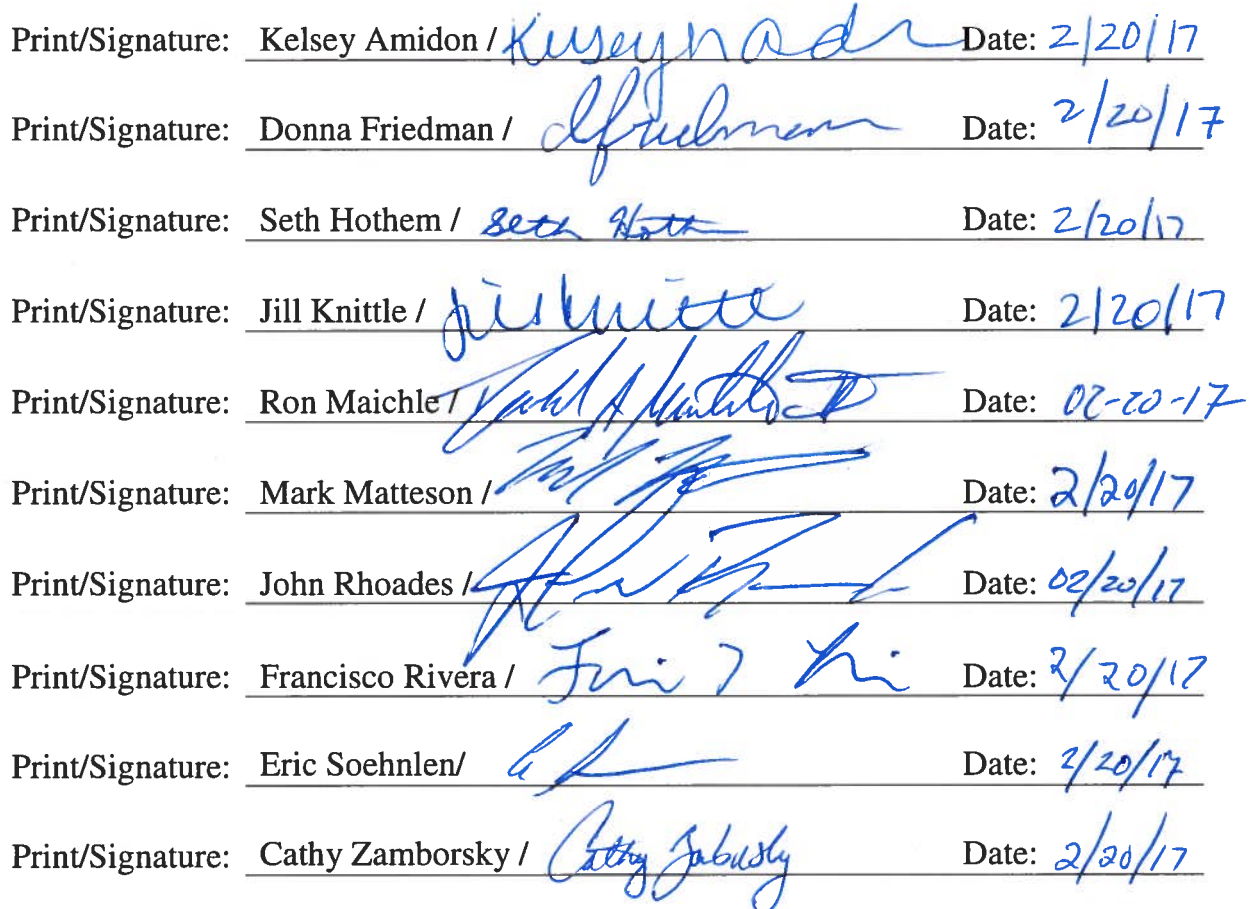 Print/Signature: Kelsey Amidon / Date: 2/20/17
Print/Signature: Donna Friedman / dfriedman Date: 2/20/17
Print/Signature: Seth Hothem / Seth Hothem Date: 2/20/17
Print/Signature: Jill Knittle / Jill Knittle Date: 2/20/17
Print/Signature: Ron Maichle / Date: 02-20-17
Print/Signature: Mark Matteson / Date: 2/20/17
Print/Signature: John Rhoades / Date: 02/20/17
Print/Signature: Francisco Rivera / Date: 2/20/17
Print/Signature: Eric Soehnlen/ Date: 2/20/17
Print/Signature: Cathy Zamborsky / Cathy Zamborsky Date: 2/20/17